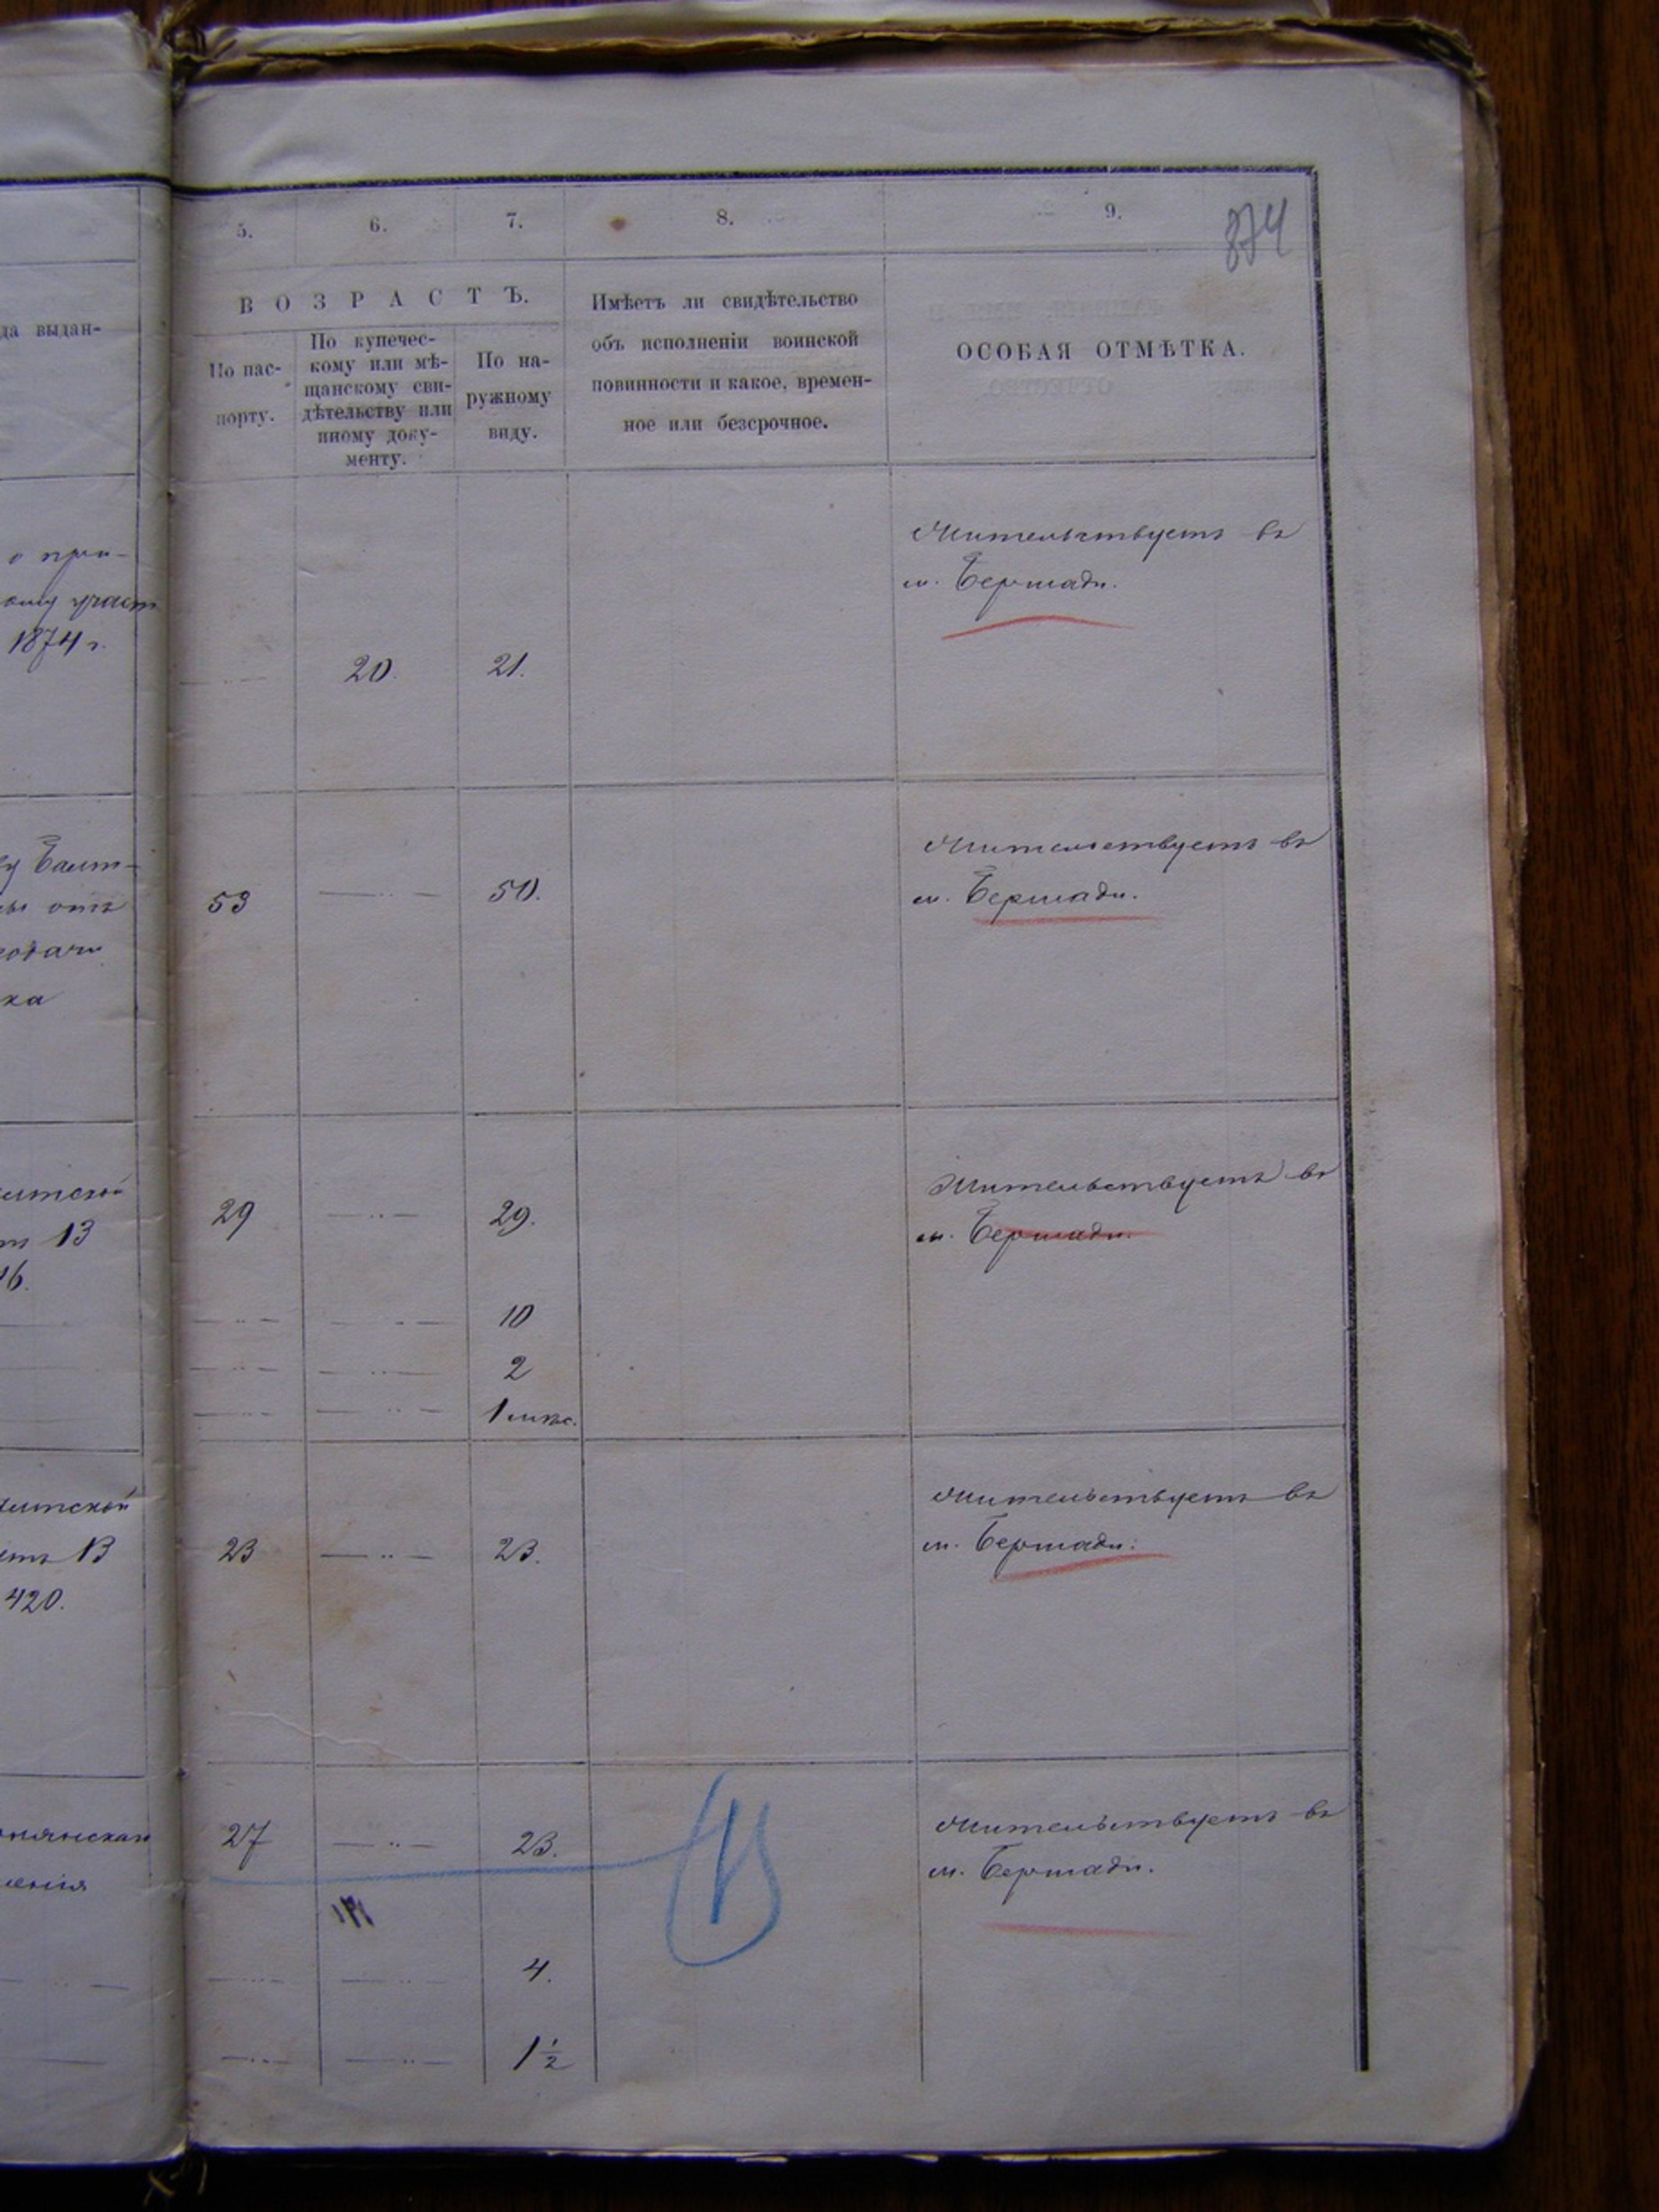 да выдан-
о при-
кому участ
1874 г.
Балт-
отъ
ка
13
16.
13
420.
5.
6.
7.
8.
9.
874
ВОЗРАСТЪ.
По пас-
порту.
По купечес-
кому или мѣ-
щанскому сви-
дѣтельству или
иному доку-
менту.
По на-
ружному
виду.
Имѣетъ ли свидѣтельство
объ исполненіи воинской
повинности и какое, времен-
ное или безсрочное.
ОСОБАЯ ОТМѢТКА.
20. 21.
Жительствуетъ въ
м. Бершади.
53 50.
Жительствуетъ въ
м. Бершади.
29 29.
Жительствуетъ въ
м. Бершади.
10
2
1 мѣс.
23 23.
Жительствуетъ въ
м. Бершади.
27 23.
Жительствуетъ въ
м. Бершади.
4.
1½